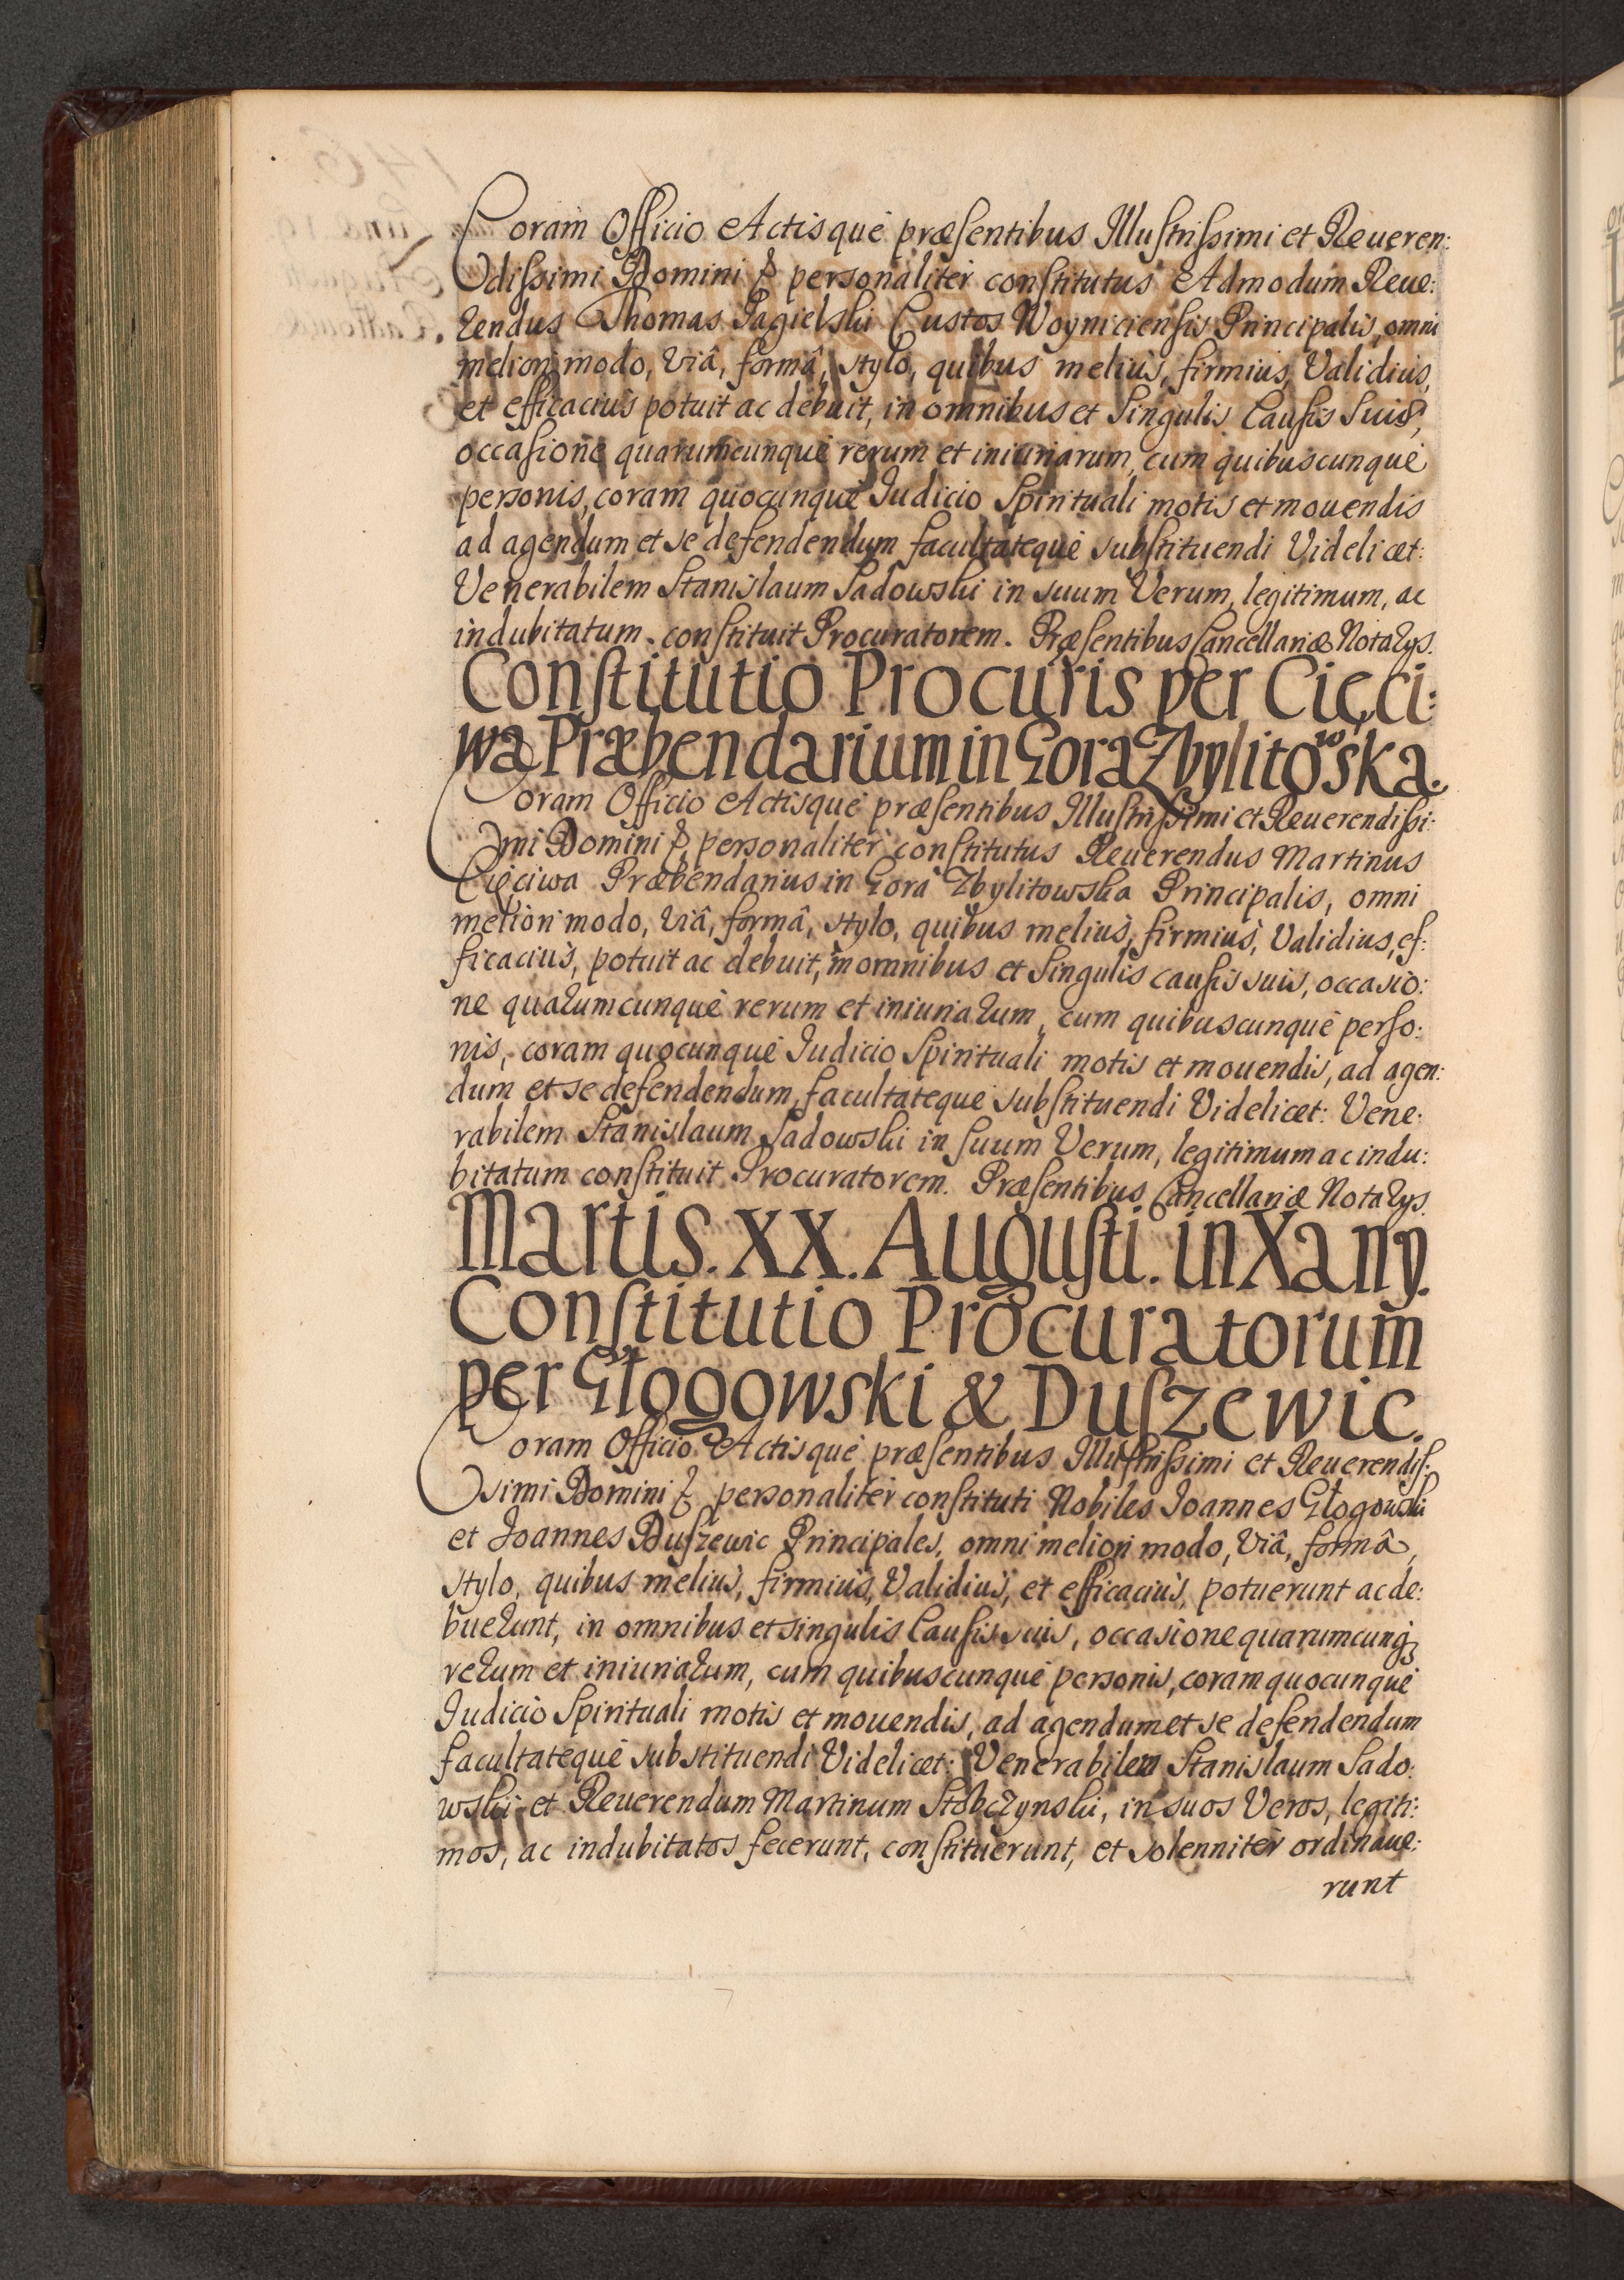 Coram Officio Actisque præsentibus Illustrissimi et Reueren:
dissimi Domini & personaliter constitutus Admodum Reue:
rendus Thomas Jagielski Custos Woyniciensis Principalis, omni
meliori modo, viâ, formâ, stylo, quibus meliùs, firmiùs, Validiùs,
et efficaciùs potuit ac debuit, in omnibus et singulis Causis suis,
occasione quarumcunque rerum et iniuriarum, cum quibuscunque
personis, coram quocunque Iudicio Spirituali motis et mouendis
ad agendum et se defendendum facultateque substituendi Videlicet:
Venerabilem Stanislaum Sadowski in suum Verum, legitimum, ac
indubitatum constituit Procuratorem. Præsentibus Cancellariæ Notarys.
Constitutio Procuris per Cięci:
wa Præbendarium in Gora Zbylitowska.
Coram Officio Actisque præsentibus Illustrissimi et Reuerendissi:
mi Domini & personaliter constitutus Reuerendus Martinus
Cięciwa Præbendarius in Gora Zbylitowska Principalis, omni
meliori modo, viâ, formâ, stylo, quibus meliùs, firmiùs, Validiùs, ef:
ficaciùs, potuit ac debuit, in omnibus et singulis causis suis, occasio:
ne quarumcunque rerum et iniuriarum, cum quibuscunque perso:
nis, coram quocunque Iudicio Spirituali motis et mouendis, ad agen:
dum et se defendendum, facultateque substituendi Videlicet: Vene:
rabilem Stanislaum Sadowski in suum Verum, legitimum ac indu:
bitatum constituit Procuratorem. Præsentibus Cancellariæ Notarys.
Martis. XX. Augusti. in Xany.
Constitutio Procuratorum
per Głogowski & Duszewic.
Coram Officio Actisque præsentibus Illustrissimi et Reuerendis:
simi Domini & personaliter constituti Nobiles Ioannes Głogowski
et Joannes Duszewic Principales, omni meliori modo, viâ, formâ,
stylo, quibus meliùs, firmiùs, Validiùs, et efficaciùs, potuerunt ac de:
buerunt, in omnibus et singulis Causis suis, occasione quarumcunqȝ
rerum et iniuriarum, cum quibuscunque personis, coram quocunque
Iudicio Spirituali motis et mouendis, ad agendum et se defendendum
facultateque substituendi Videlicet: Venerabilem Stanislaum Sado:
wski et Reuerendum Martinum Stobczynski, in suos Veros, legiti:
mos, ac indubitatos fecerunt, constituerunt, et solenniter ordinaue:
runt